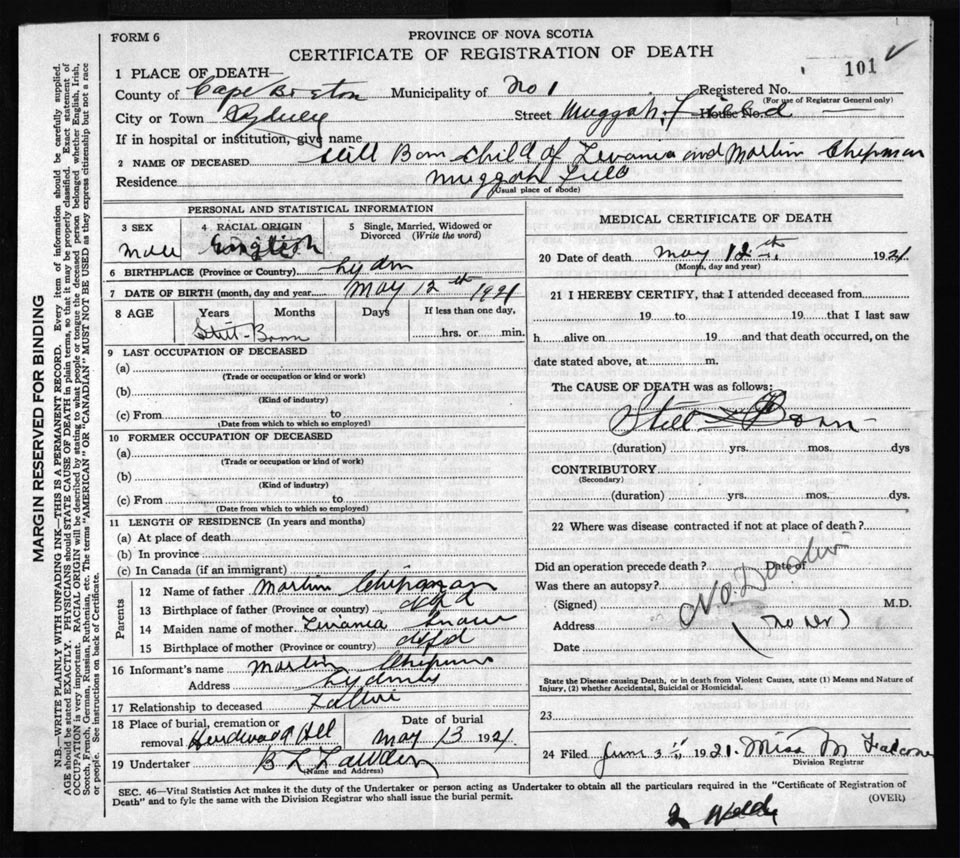 FORM 6
PROVINCE OF NOVA SCOTIA
CERTIFICATE OF REGISTRATION OF DEATH
101
1 PLACE OF DEATH—
County of Cape Breton Municipality of No 1 Registered No.
(For use of Registrar General only)
City or Town Sydney Street Muggah House No.
If in hospital or institution, give name
2 NAME OF DECEASED Still Born child of Levania and Martin Chipman
Residence Muggah Field
(Usual place of abode)
MARGIN RESERVED FOR BINDING
N.B.—WRITE PLAINLY WITH UNFADING INK—THIS IS A PERMANENT RECORD. Every item of information should be carefully supplied.
AGE should be stated EXACTLY. PHYSICIANS should STATE CAUSE OF DEATH in plain terms, so that it may be properly classified. Exact statement of
OCCUPATION is very important. RACIAL ORIGIN will be described by stating to what people or tongue the deceased person belonged whether English, Irish,
Scotch, French, German, Russian, Ruthenian, etc. The terms "AMERICAN" or "CANADIAN" MUST NOT BE USED as they express citizenship but not a race
or people. See instructions on back of Certificate.
PERSONAL AND STATISTICAL INFORMATION
3 SEX
Male
4 RACIAL ORIGIN
English
5 Single, Married, Widowed or
Divorced (Write the word)
6 BIRTHPLACE (Province or Country)
7 DATE OF BIRTH (month, day and year) May 12th 1921
8 AGE Years Months Days If less than one day,
Still-Born hrs. or min.
9 LAST OCCUPATION OF DECEASED
(a)
(Trade or occupation or kind or work)
(b)
(Kind of industry)
(c) From to
(Date from which to which so employed)
10 FORMER OCCUPATION OF DECEASED
(a)
(Trade or occupation or kind of work)
(b)
(Kind of industry)
(c) From to
(Date from which to which so employed)
11 LENGTH OF RESIDENCE (In years and months)
(a) At place of death
(b) In province
(c) In Canada (if an immigrant)
Parents
12 Name of father Martin Chipman
13 Birthplace of father (Province or country) nfld
14 Maiden name of mother Levania Snow
15 Birthplace of mother (Province or country) nfld
16 Informant's name Martin Chipman
Address Sydney
17 Relationship to deceased Father
18 Place of burial, cremation or
removal Hardwood Hill
Date of burial
May 13 1921
19 Undertaker B L
(Name and Address)
MEDICAL CERTIFICATE OF DEATH
20 Date of death May 12th 1921
(Month, day and year)
21 I HEREBY CERTIFY, that I attended deceased from
19 to 19 that I last saw
h alive on 19 and that death occurred, on the
date stated above, at m.
The CAUSE OF DEATH was as follows:
Still Born
(duration) yrs. mos. dys
CONTRIBUTORY
(Secondary)
(duration) yrs. mos. dys.
22 Where was disease contracted if not at place of death?
Did an operation precede death? Date of
Was there an autopsy?
(Signed) No Doctor M.D.
Address
Date
State the Disease causing Death, or in death from Violent Causes, state (1) Means and Nature of
Injury, (2) whether Accidental, Suicidal or Homicidal.
23
24 Filed June 3 1921. Miss M
Division Registrar
SEC. 46—Vital Statistics Act makes it the duty of the Undertaker or person acting as Undertaker to obtain all the particulars required in the "Certificate of Registration of
Death" and to fyle the same with the Division Registrar who shall issue the burial permit.
(OVER)